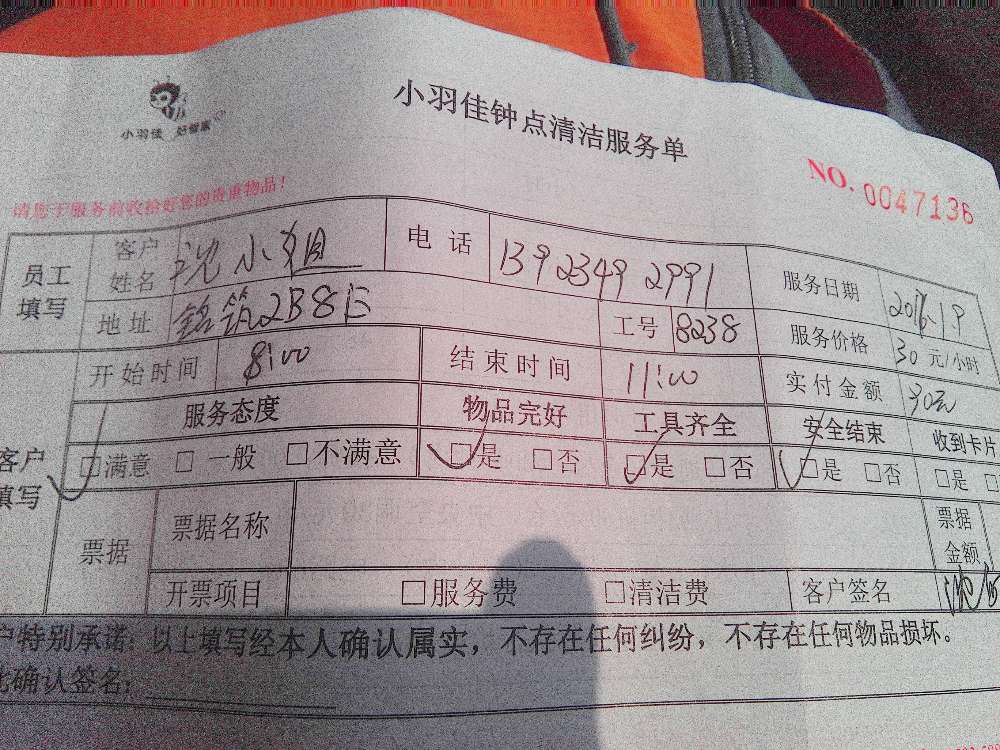 小羽佳 好管家
小羽佳钟点清洁服务单
NO. 0047136
请您于服务前收拾好您的贵重物品!
员工填写 客户姓名 沈小姐 电话 13923492991 服务日期
地址 铭筑2B8E 工号 8238 服务价格 30元/小时
开始时间 8:00 结束时间 11:00 实付金额 30元
客户填写 服务态度 物品完好 工具齐全 安全结束 收到卡片
□满意 □一般 □不满意 □是 □否 □是 □否 □是 □否 □是 □
票据 票据名称 票据金额
开票项目 □服务费 □清洁费 客户签名
户特别承诺:以上填写经本人确认属实,不存在任何纠纷,不存在任何物品损坏。
此确认签名: